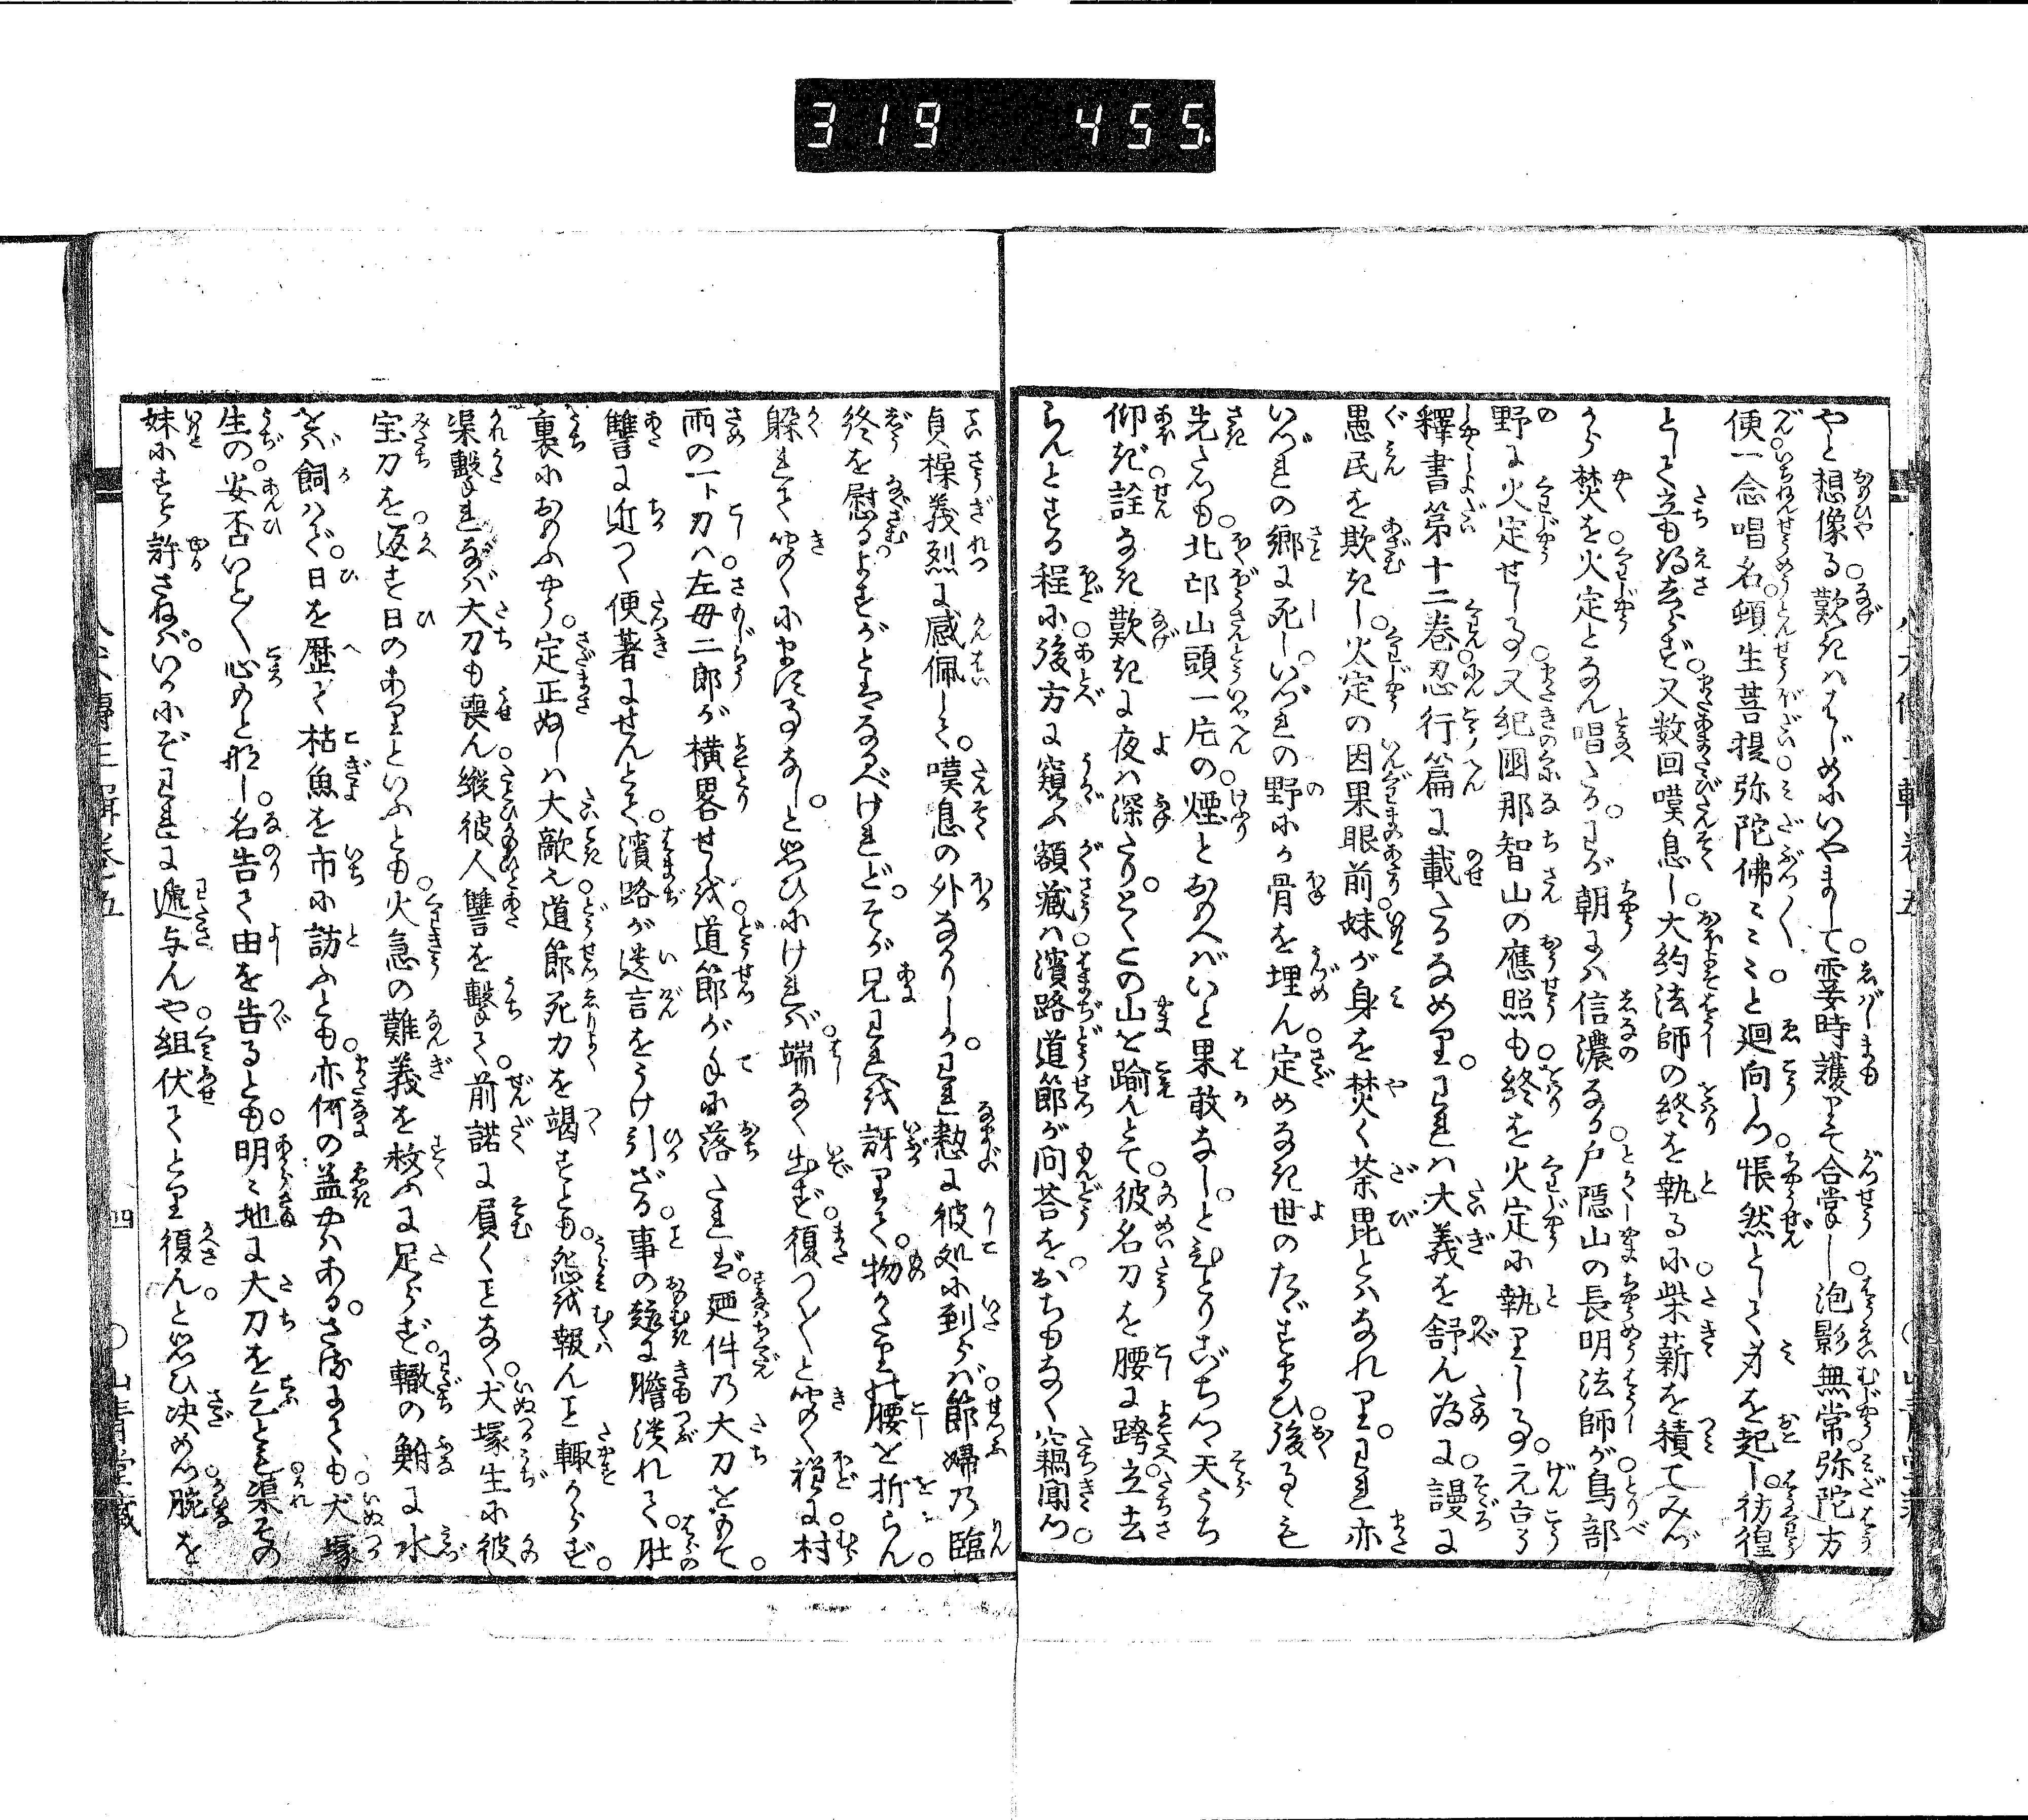 319 455
やと想像る歎きははじめにいやまして。霎時護りて合掌し泡影無常弥陀方
便一念唱名頓生菩提弥陀佛〻〻。と廻向しつ悵然として身を起し彷徨
として立も得去らず。又数回嘆息し。大約法師の終を執るに柴薪を積てみづ
から焚を火定となん唱たる。わが朝には信濃なる戸隠山の長明法師が鳥部
野に火定せし事。又紀國那智山の應照も終を火定に執りし事。元亨
釋書第十二巻忍行篇に載たるなめり。われは大義を舒ん為に。謾に
愚民を欺きし。火定の因果眼前。妹が身を焚く荼毘とはなれり。われ亦
いづれの郷に死し。いづれの野にか骨を埋ん。定めなき世のたゞずまひ。後るゝも
先たつも。北邙山頭一片の。煙とおもへばいと果敢なし。とひとりごちつゝ天うち
仰ぎ。詮なき歎きに夜は深たり。とくこの山を踰んとて。彼名刀を腰に跨。立去
らんとする程に。後方に窺ふ額藏は。濱路道節が問荅を。おちもなく竊聞つ。
貞操義烈に感佩して。嘆息の外なかりしか。われ憖に彼処に到らば。節婦の臨
終を慰るよすがとはなるべけれど。そが兄われを訝りて。物がたりの腰を折らん。
躱れて聞くにますことなし。と思ひにければ。端なく出ず。復つく〳〵と聞く程に。村
雨の一ト刀は。左母二郎が横畧せしを。道節が手に落たれば。廼件の大刀をもて。
讐に近つく便著にせんとて。濱路が遺言をうけ引ざる。事の趣に膽潰れて。肚
裏におもふやう。定正ぬしは大敵也。道節死力を竭すとも。怨を報んこと輙からず。
渠撃れなば大刀も喪ん。縦彼人讐を撃て。前諾に屓くことなく。犬塚生に彼
宝刀を。返す日のありといふとも。火急の難義を救ふに足らず。轍の鮒に水
をば飼はで。日を歴て枯魚を市に訪ふとも。亦何の益やはある。さるにても。犬塚
生の。安否いと〳〵心もとなし。名告て由を告るとも。明々地に大刀を乞とも。渠その
妹にすら許さねば。いかにぞわれに逓与んや。組伏てとり復ん。と思ひ决めつ。腕を
八犬傳三輯巻五
四
山青堂藏